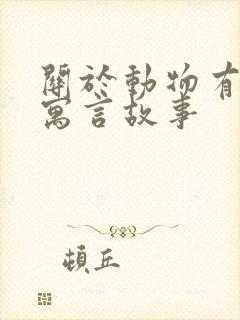 關於動物有
寓言故事
頓丘